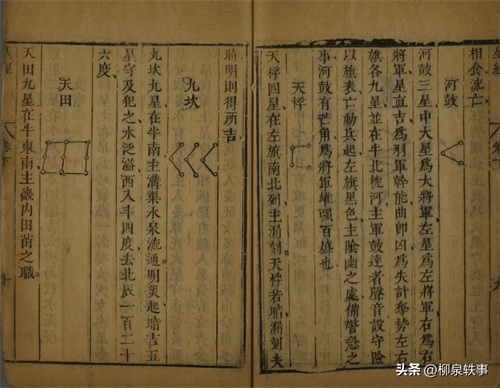 相食流亡
河鼓
河鼓三星中大星爲大將軍左星爲左將軍右爲右
將軍星直吉爲羽軍幹能曲卽凶爲失計奪勢左右
旗各九星並在牛北恍河主軍鼓達者聲音設守險
以旗表亡動兵起左旗黑色主陰幽之處備警急之
事河鼓有芒角爲將軍雄強百盛也
天桴
天桴四星在左旗南北列主漏刻天桴若暗漏刻失
聰明則得所吉
九坎
九坎九星在牛南主溝渠水泉流通明災起暗吉五
星守及犯之水泛溢西入斗四度去北辰一百二十
六度
天田
天田九星在牛東南主畿內田苗之職
头条 @柳泉轶事